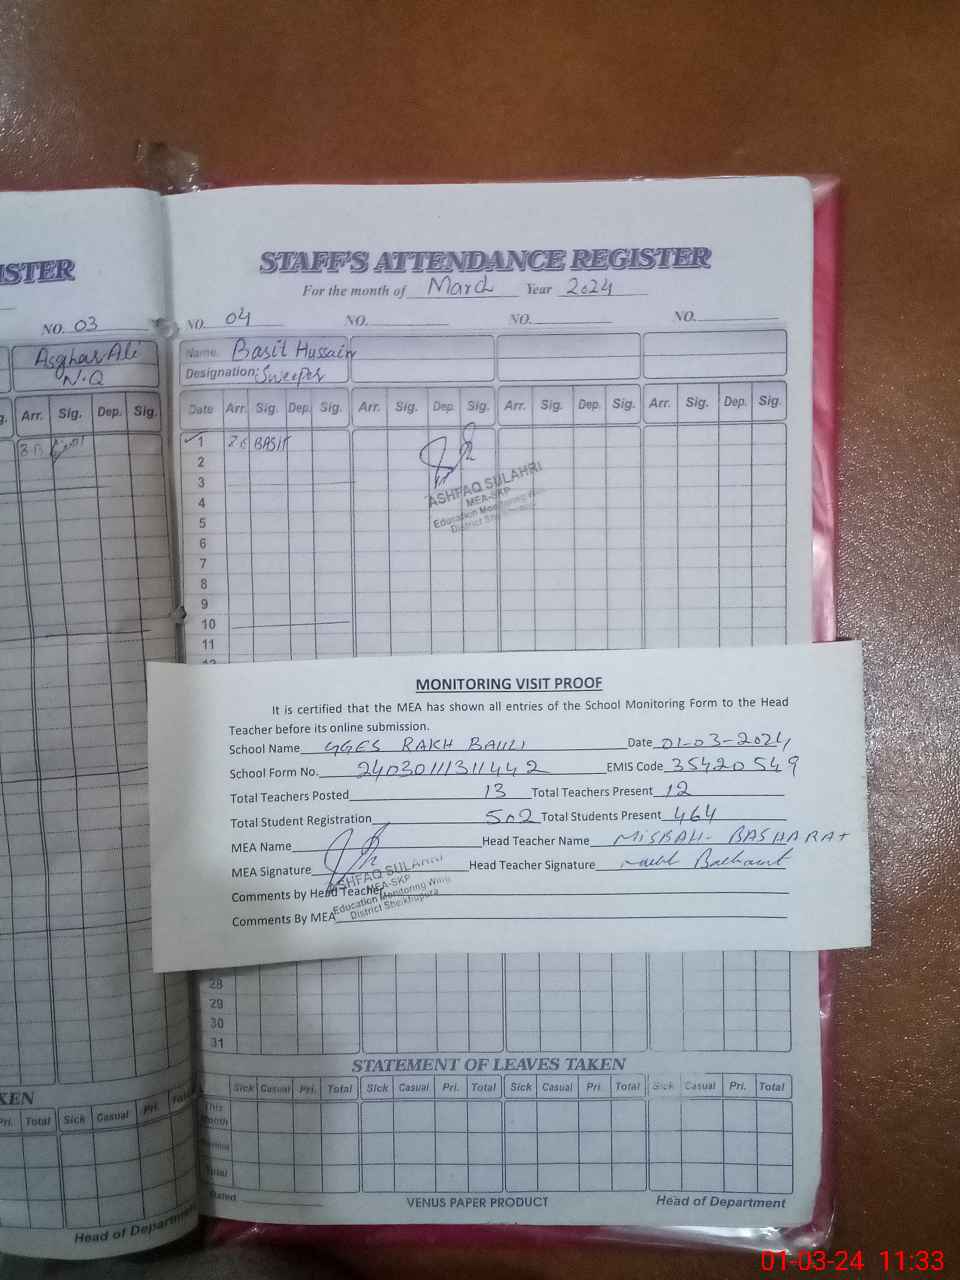 ISTER
NO. 03
Asghar Ali
N.Q
g. Arr. Sig. Dep. Sig.
STAFF'S ATTENDANCE REGISTER
For the month of March Year 2024
NO. 04 NO. NO. NO.
Name. Basit Hussain
Designation: Sweeper
Date Arr. Sig. Dep. Sig. Arr. Sig. Dep. Sig. Arr. Sig. Dep. Sig. Arr. Sig. Dep. Sig.
1 BASIT
2
3
4
5
6
7
8
9
10
11
12
ASHFAQ SULAHRI
MEA-SKP
Education Monitoring Wing
District Sheikhupura
MONITORING VISIT PROOF
It is certified that the MEA has shown all entries of the School Monitoring Form to the Head
Teacher before its online submission.
School Name GGES RAKH BAULI Date 01-03-2024
School Form No. 2403011311442 EMIS Code 35420549
Total Teachers Posted 13 Total Teachers Present 12
Total Student Registration 502 Total Students Present 464
MEA Name Head Teacher Name MISBAH BASHARAT
MEA Signature Head Teacher Signature
Comments by Head Teacher
Comments By MEA
ASHFAQ SULAHRI
MEA-SKP
Education Monitoring Wing
District Sheikhupura
28
29
30
31
STATEMENT OF LEAVES TAKEN
Sick Casual Pri. Total Sick Casual Pri. Total Sick Casual Pri. Total Sick Casual Pri. Total
This Month
Total
Dated
VENUS PAPER PRODUCT
Head of Department
KEN
Pri. Total Sick Casual Pri. Total
Head of Department
01-03-24 11:33